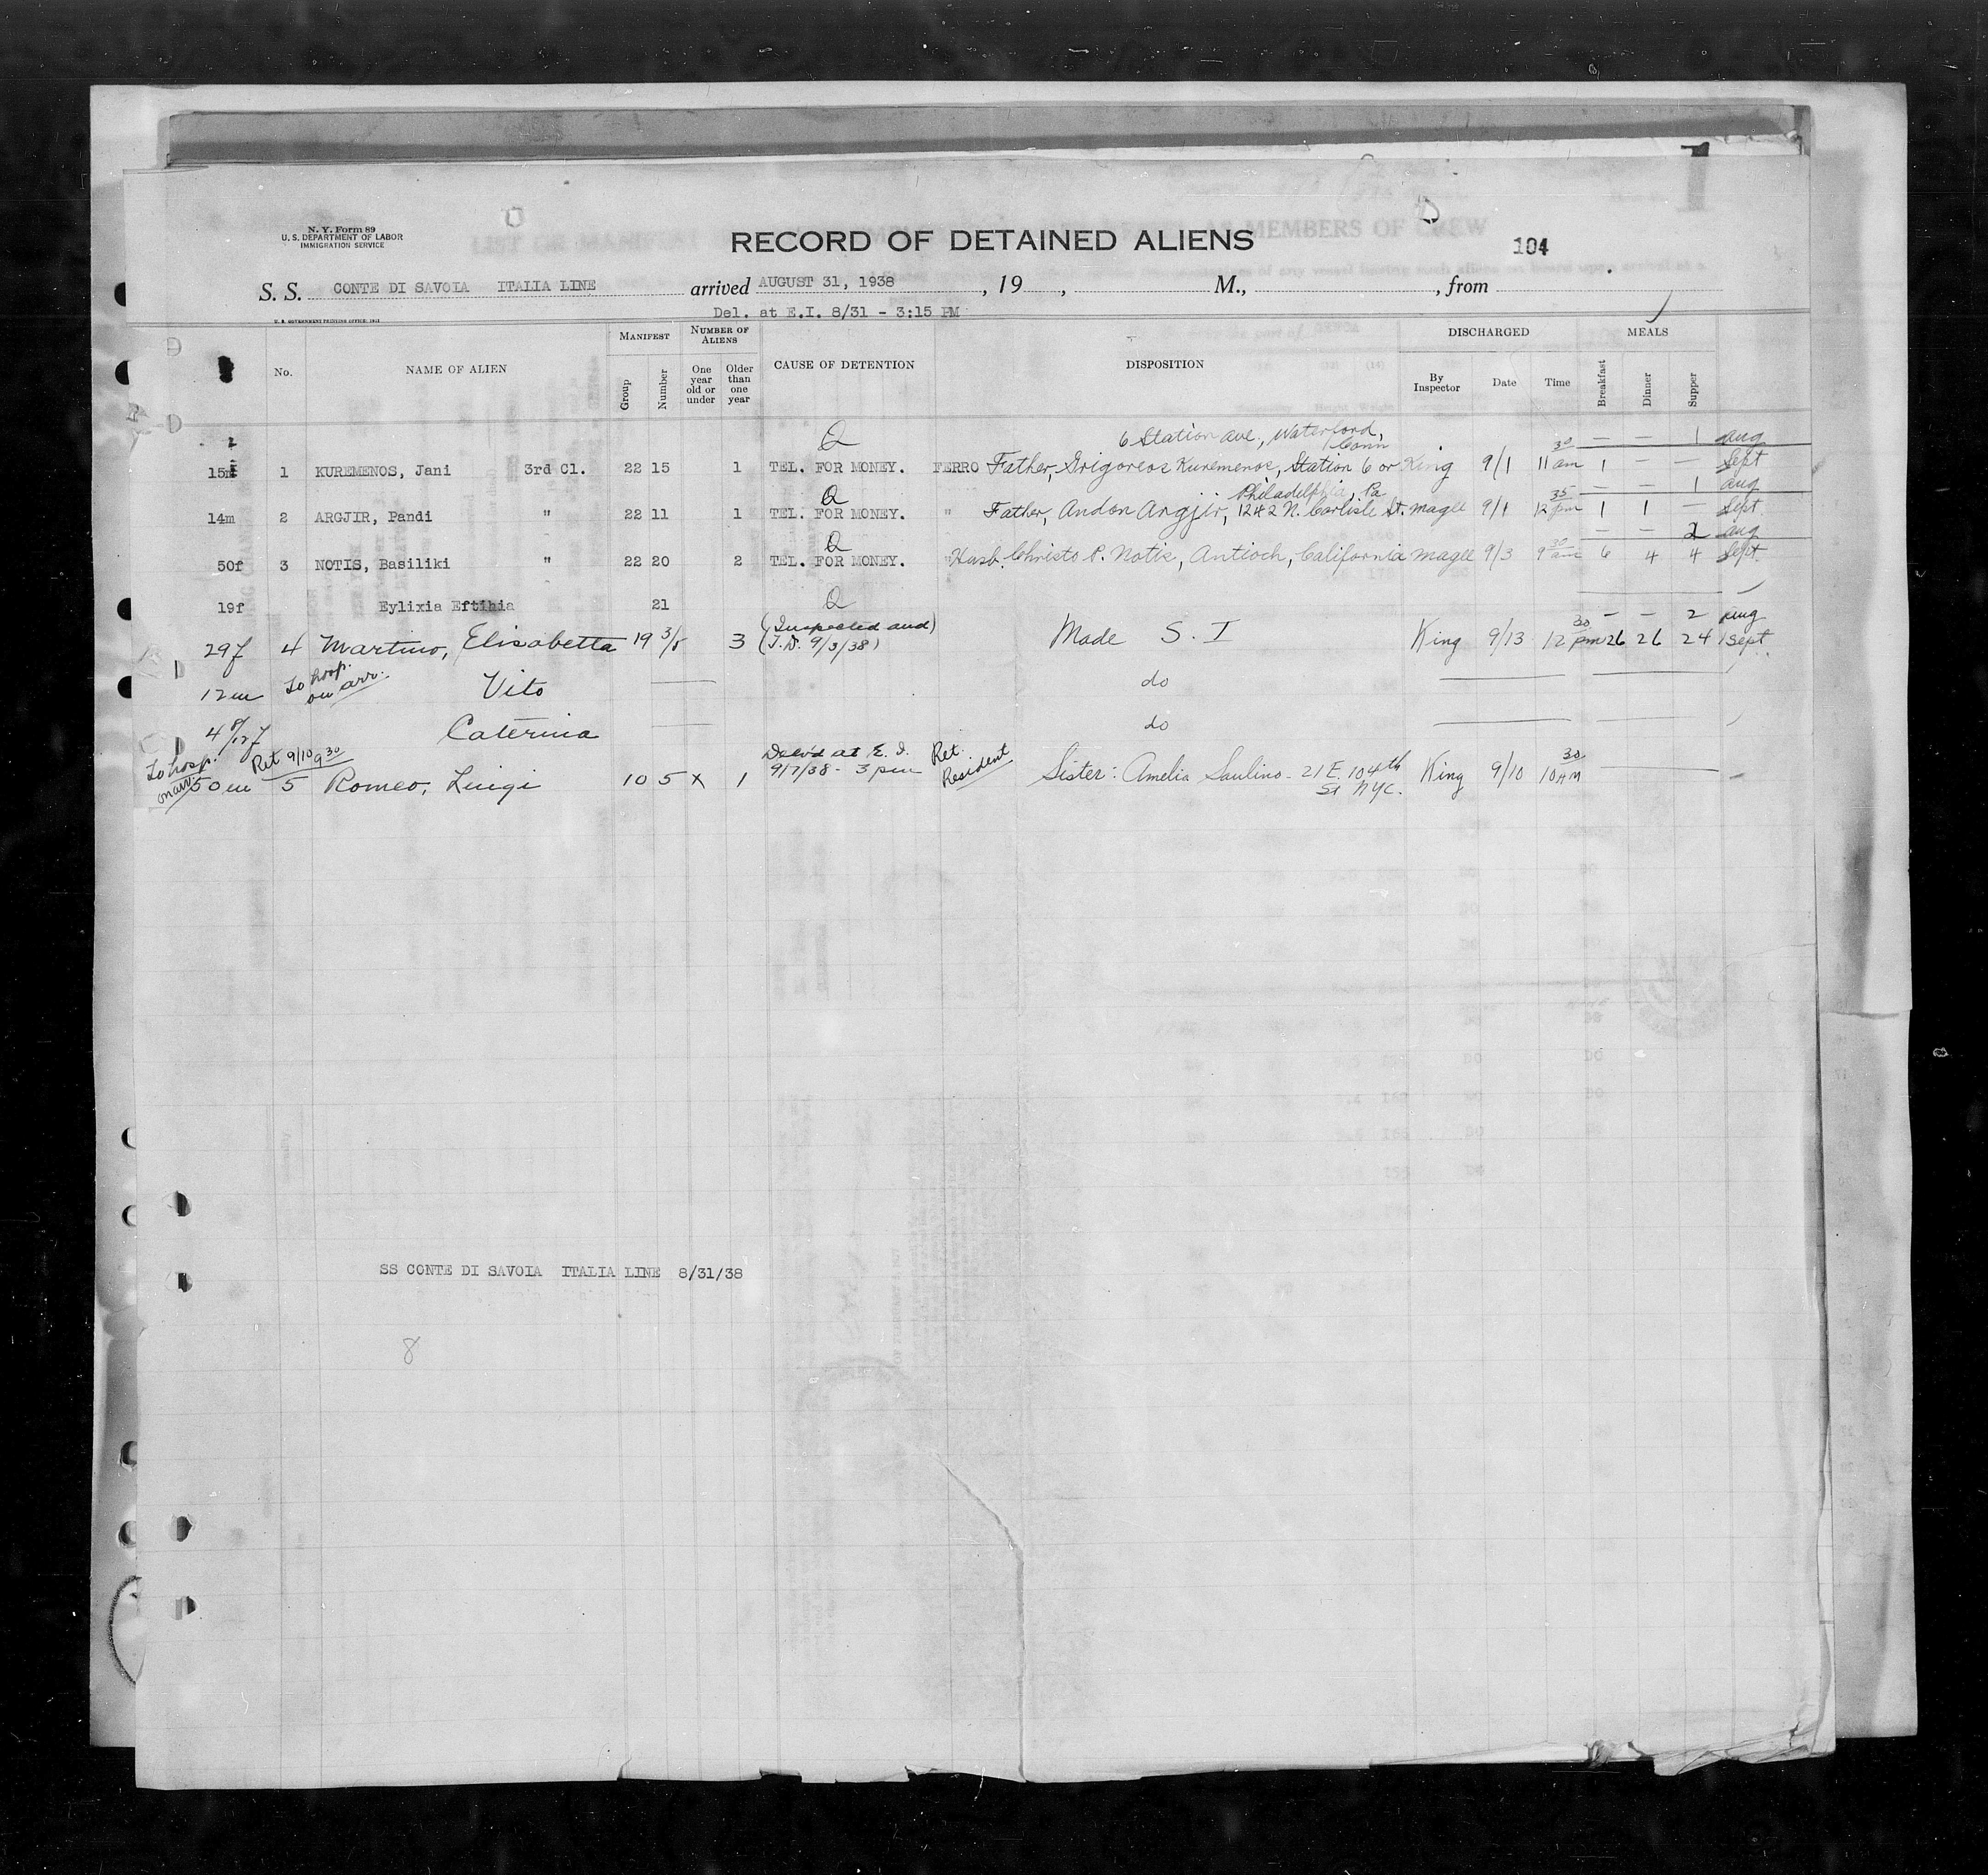 N. Y. Form 89
U. S. DEPARTMENT OF LABOR
IMMIGRATION SERVICE
RECORD OF DETAINED ALIENS
104
S. S. CONTE DI SAVOIA ITALIA LINE arrived AUGUST 31, 1938, 19 , M., , from
Del. at E.I. 8/31 - 3:15 PM
U. S. GOVERNMENT PRINTING OFFICE:
No. NAME OF ALIEN MANIFEST NUMBER OF ALIENS CAUSE OF DETENTION DISPOSITION DISCHARGED MEALS
Group Number One year old or under Older than one year By Inspector Date Time Breakfast Dinner Supper
Q 6 Station Ave., Waterford, Conn — — 1 Aug
15m 1 KUREMENOS, Jani 3rd Cl. 22 15 1 TEL. FOR MONEY. FERRO Father, Grigoreos Kuremenos, Station 6 or King 9/1 11 30 am 1 — — Sept
Q Philadelphia, Pa — — 1 Aug
14m 2 ARGJIR, Pandi " 22 11 1 TEL. FOR MONEY. " Father, Andon Argjir, 1242 N. Carlisle St. Magee 9/1 12 35 pm 1 1 — Sept
Q — — 2 Aug
50f 3 NOTIS, Basiliki " 22 20 2 TEL. FOR MONEY. " Husb. Christo P. Notis, Antioch, California Magee 9/3 9 30 am 6 4 4 Sept
19f Eylixia Eftihia 21 Q
(Inspected and) — — 2 Aug
29f 4 Martino, Elisabetta 19 3/5 3 (T.D. 9/3/38) Made S. I King 9/13 12 30 pm 26 26 24 Sept.
12m To hosp. on arr. Vito do
4 8/12 f Caterina do
To hosp. on arr. Ret 9/10 9 30 Del'd at E. I. Ret.
50m 5 Romeo, Luigi 10 5 X 1 9/7/38 - 3 pm Resident Sister: Amelia Saulino - 21 E. 104th St NYC. King 9/10 10 30 AM
SS CONTE DI SAVOIA ITALIA LINE 8/31/38
8